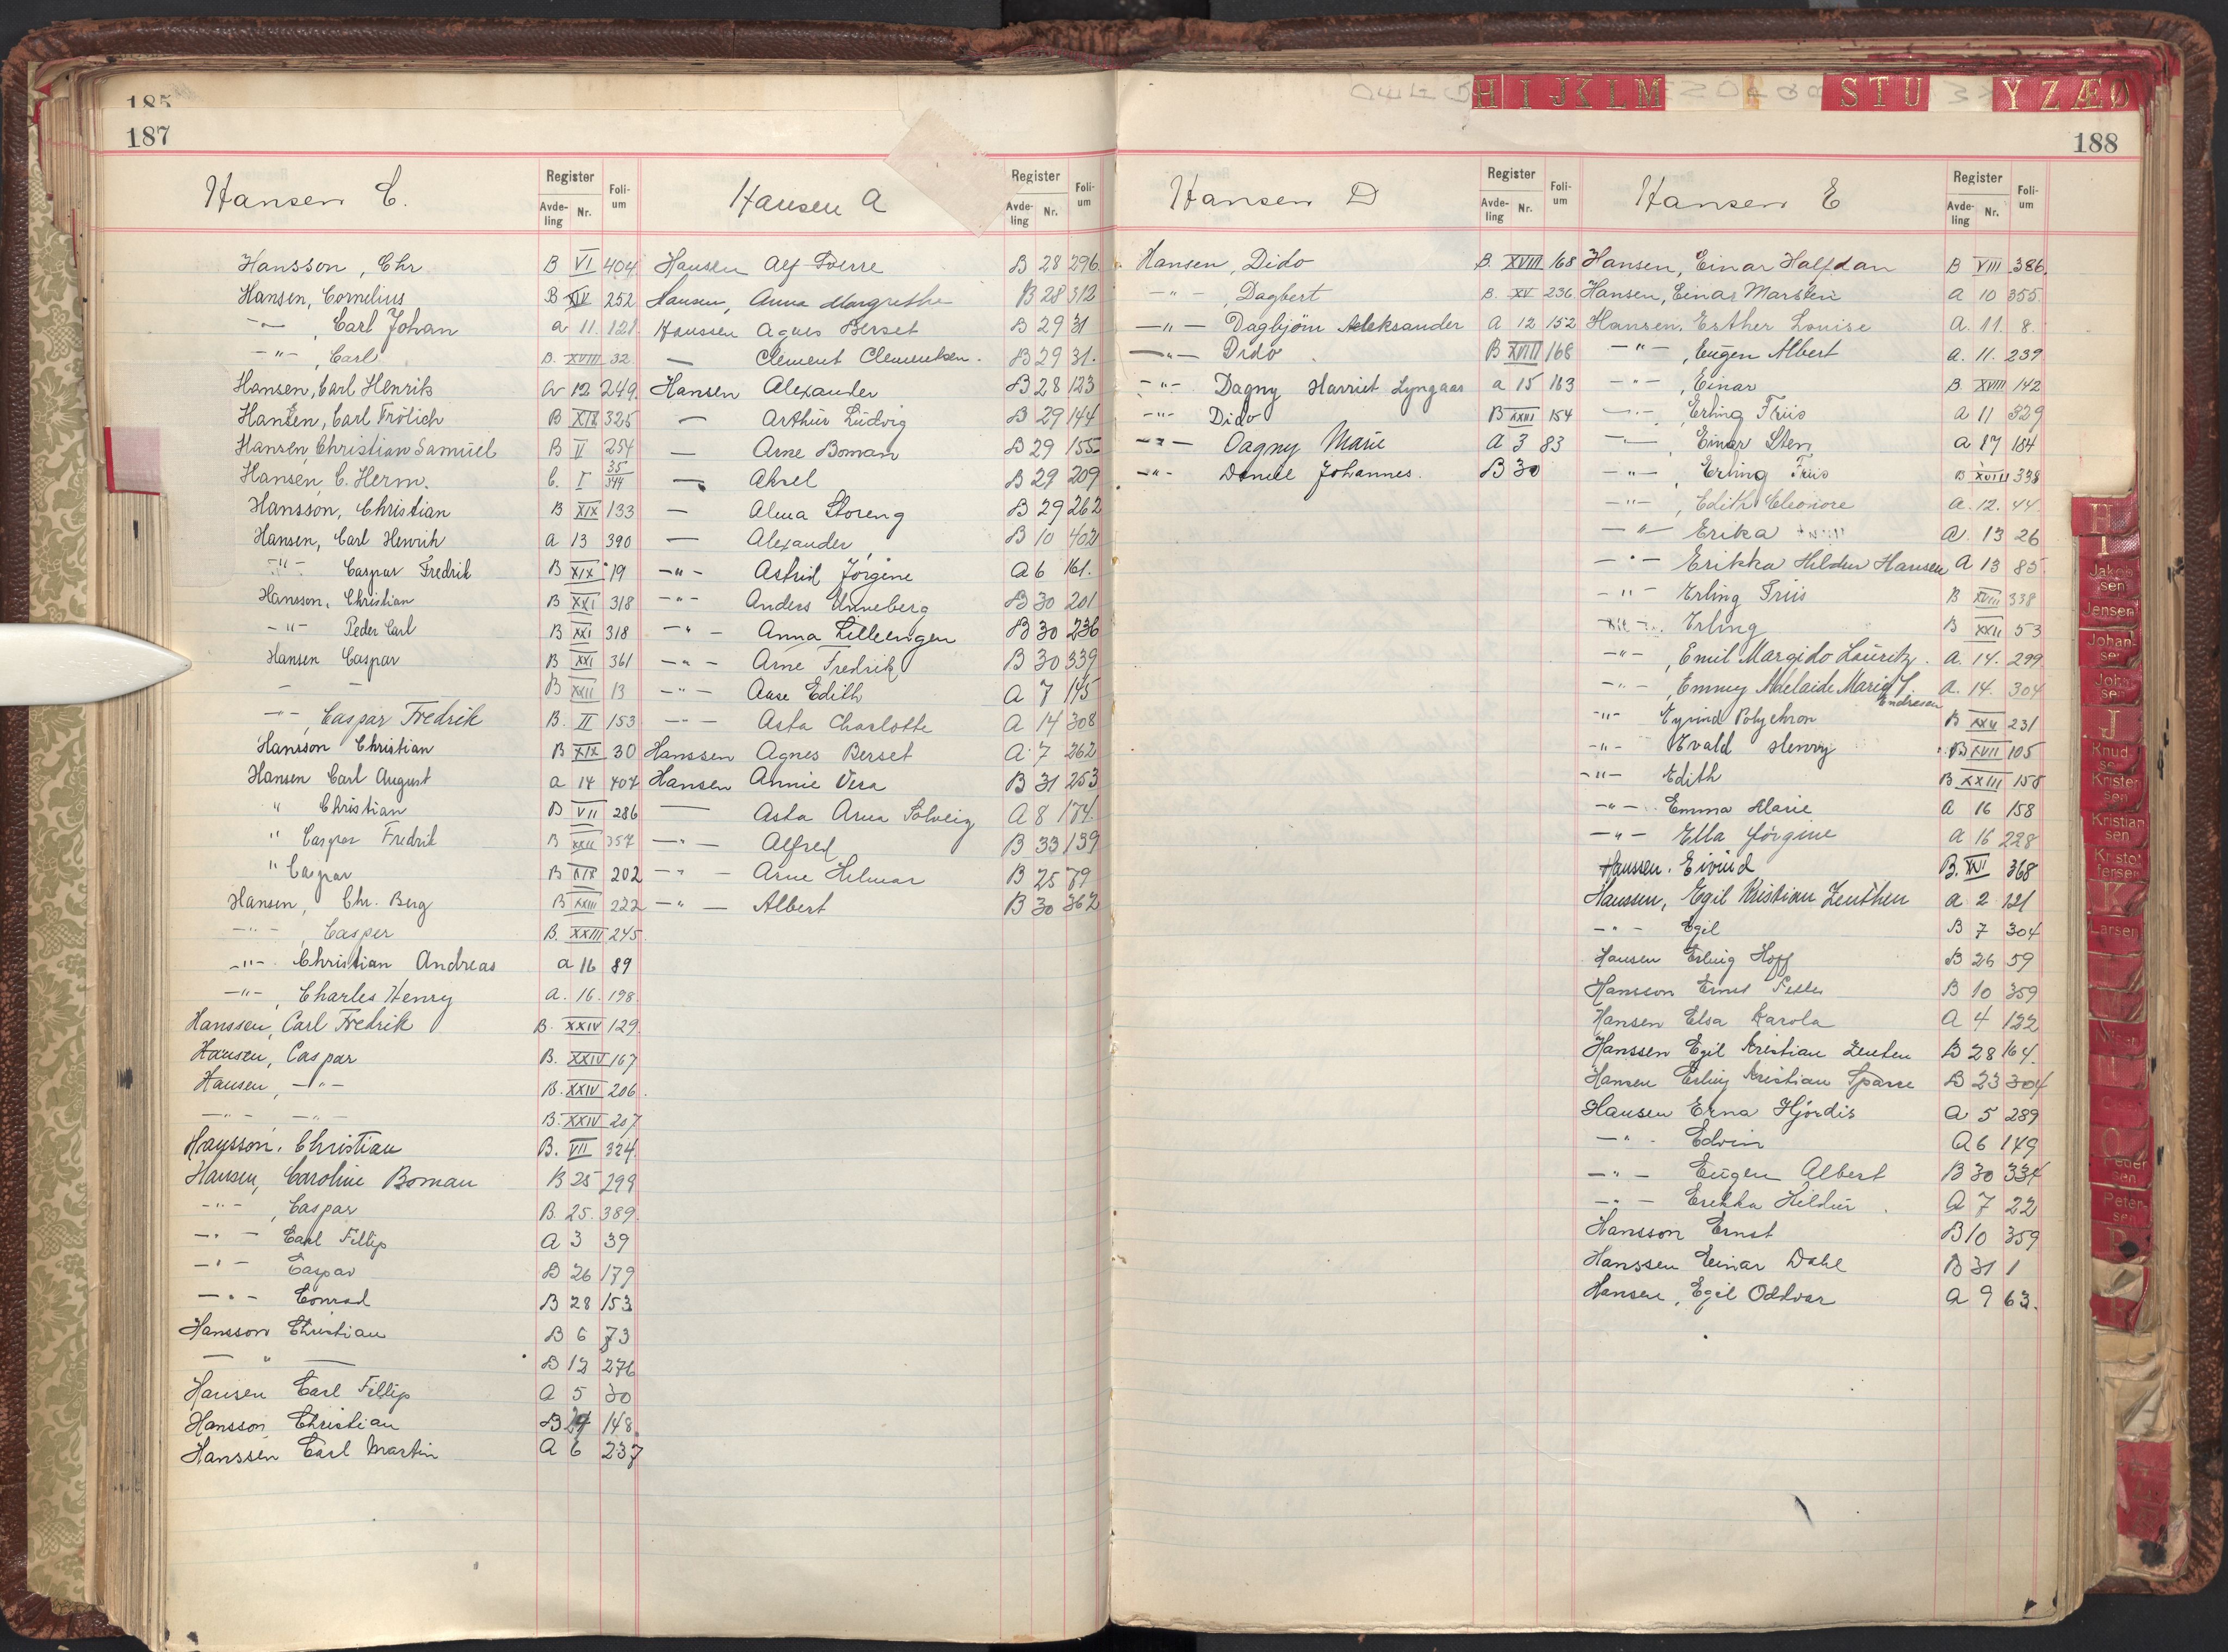 185
187
Hansen C.
Register
Avde-ling Nr.
Foli-um
Hansson, Chr B VI 404
Hansen, Cornelius B XIV 252
-"- , Carl Johan a 11. 121
-"- , Carl B. XVIII 32
Hansen, Carl Henrik a 12 249.
Hansen, Carl Frölich B XIX 325
Hansen, Christian Samuel B V 254
Hansen, C. Herm. C. I 35/344
Hansson, Christian B XIX 133
Hansen, Carl Henrik a 13 390
-"- Caspar Fredrik B XIX 19
Hansson, Christian B XXI 318
-"- Peder Carl B XXI 318
Hansen Caspar B XXI 361
- - B XXII 13
-"- , Caspar Fredrik B. II 153
Hansson Christian B XIX 30
Hansen Carl August a 14 404
" Christian B VII 286
" Caspar Fredrik B XXII 357
" Caspar B XIX 202
Hansen, Chr. Berg B XXIII 222
-"- , Casper B. XXIII 245.
-"- Christian Andreas a 16 89
-"- , Charles Henry A. 16. 198
Hanssen, Carl Fredrik B. XXIV 129
Hansen, Caspar B. XXIV 167
Hansen, -"- B. XXIV 206.
-"- -"- B. XXIV 207
Hansson, Christian B. VII 324
Hansen, Caroline Boman B 25 299
-"- , Caspar B. 25. 389.
-"- Carl Fillip A 3 39
-"- Caspar B 26 179
-"- Conrad B 28 153
Hansson Christian B 6 73
- " - B 12 276
Hansen Carl Fillip A 5 30
Hansson Christian B 148.
Hanssen Carl Martin A 6 237
Hansen A
Register
Avde-ling Nr.
Foli-um
Hansen Alf Sverre B 28 296
Hansen, Anna Margrethe B 28 312
Hanssen Agnes Berset B 29 31
- Clement Clementsen. B 29 31.
Hansen Alexander B 28 123
- Arthur Ludvig B 29 144
- Arne Boman B 29 155
- Aksel B 29 209
- Alma Storeng B 29 262
- Alexander B 10 402
-"- Astrid Jörgine A 6 161.
-"- Anders Unneberg B 30 201
-"- Anna Lilleengen B 30 236
-"- Arne Fredrik B 30 339
-"- Aase Edith A 7 145
-"- Asta Charlotte A 14 308
Hanssen Agnes Berset A 7 262
Hansen Annie Vera B 31 253
- Asta Arna Solveig A 8 174.
-"- Alfred B 33 139
-"- Arne Helmar B 25 79
-"- Albert B 30 362
H I J K L M S T U Y Z Æ Ø
188
Hansen D
Register
Avde-ling Nr.
Foli-um
Hansen, Dido B. XVIII 168
-"- , Dagbert B. XV 236
-"- Dagbjörn Aleksander A 12 152
-"- Dido B XVIII 168
-"- Dagny Harriet Lyngaas a 15 163
-"- Dido B XXII 154
-"- Dagny Marie A 3 83
-"- Daniel Johannes. B 30
Hansen E
Register
Avde-ling Nr.
Foli-um
Hansen, Einar Halfdan B VIII 386.
Hansen, Einar Marsten a 10 355.
Hansen, Esther Louise A. 11. 8.
-"- , Eugen Albert A. 11. 239
-"- , Einar B XVIII 142
-"- , Erling Friis A 11 329
-"- , Einar Sten a 17 184
-"- , Erling Friis B XVIII 338
-"- , Edith Eleonore a. 12. 44.
-"- Erika A. 13 26
-"- Erikka Hildur Hansen A 13 85
-"- Erling Friis B XVIII 338
-"- Erling B XXII 53
-"- , Emil Margido Lauritz. A. 14. 299
-"- , Emmy Adelaide Marie f. Endresen A. 14. 304
-"- Eyvind Polychron B XXII 231
-"- Evald Henry B XVII 105
-"- Edith B XXIII 158
-"- Emma Marie A 16 158
-"- Ella Jörgine A 16 228
Hanssen. Eivind B. XVI 368
Hanssen, Egil Kristian Zeuthen a 2 121
-"- Egil B 7 304
Hansen Erling Hoff B 26 59
Hansson Ernst B 10 359
Hansen Elsa Karola A 4 122
Hanssen Egil Kristian Zeuten B 28 164.
Hansen Erling Kristian Sparre B 23 304
Hansen Erna Hjördis A 5 289
-"- Edvin A 6 149
-"- Eugen Albert B 30 334
-"- Erikka Hildur. A 7 22
Hansson Ernst B 10 359
Hanssen Einar Dahl B 31 1
Hansen, Egil Oddvar A 9 63.
H
I
Jakob-sen
Jensen
Johan-sen
John-sen
J
Knud-sen
Kristen-sen
Kristian-sen
Kristof-fersen
K
Larsen
Peder-sen
Peter-sen
P
R